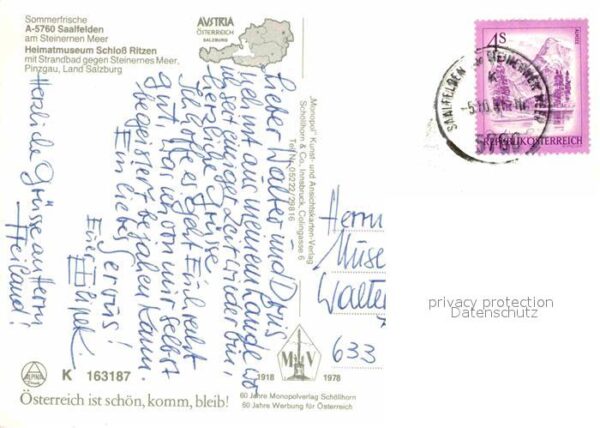 Sommerfrische
A-5760 Saalfelden
am Steinernen Meer
Heimatmuseum Schloß Ritzen
mit Strandbad gegen Steinernes Meer,
Pinzgau, Land Salzburg
AUSTRIA
ÖSTERREICH
SALZBURG
Lieber Walter und Doris
noch ist aus meinem Lande wo
seit einiger Zeit wieder bin,
herzliche Grüsse
Ich hoffe es geht Euch recht
gut, was ich von mir selbst
begeistert bejahen kann.
Ein liebes
Servus!
Euer
Herzliche Grüsse an Herrn
Heiland!
"Monopol" Kunst- und Ansichtskarten-Verlag
Schöllhorn & Co., Innsbruck, Colingasse 6
Tel. Nr. 05222/29816
4S
REPUBLIK ÖSTERREICH
SAALFELDEN AM STEINERNEN MEER
5760
Herrn
Walter
633
privacy protection
Datenschutz
ALPINA
K 163187
Österreich ist schön, komm, bleib!
M V
1918 1978
60 Jahre Monopolverlag Schöllhorn
60 Jahre Werbung für Österreich